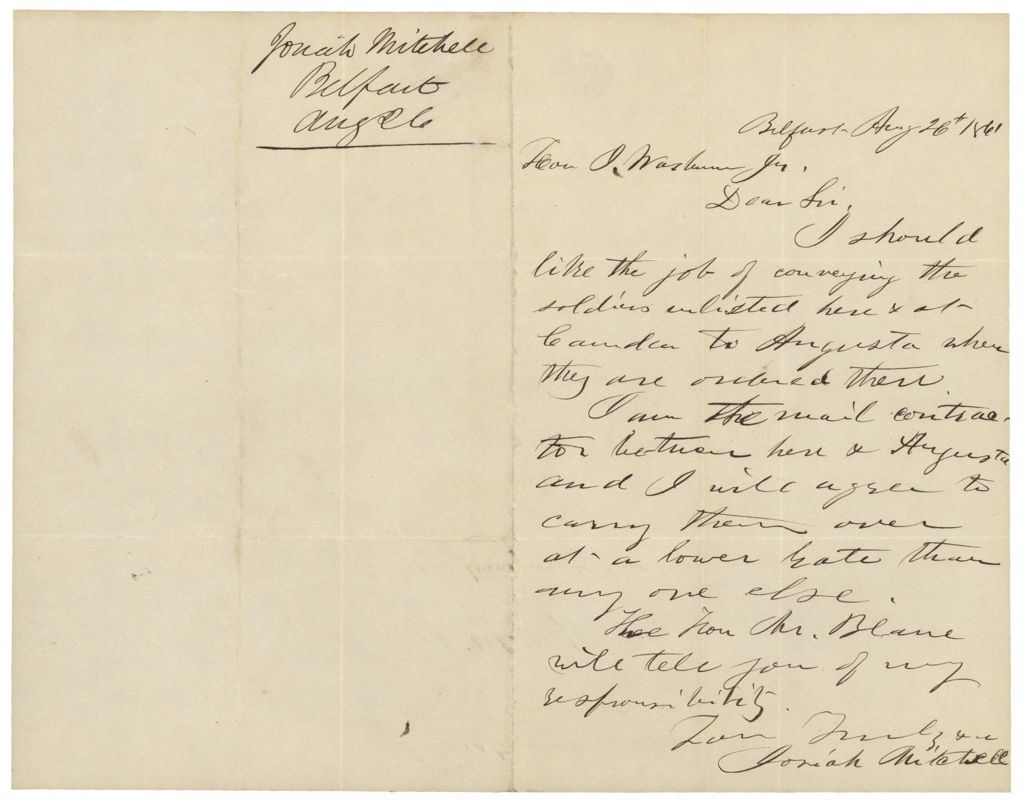 Josiah Mitchell
Belfast
Aug 26
Belfast Aug 26t 1861
Hon I. Washburn Jr.
Dear Sir.
I should
like the job of conveying the
soldiers enlisted here & at
Camden to Augusta when
they are ordered there.
I am the mail contrac-
tor between here & Augusta
and I will agree to
carry them over
at a lower rate than
any one else.
The Hon Mr. Blane
will tell you of my
responsibility.
Your Truly &c
Josiah Mitchell